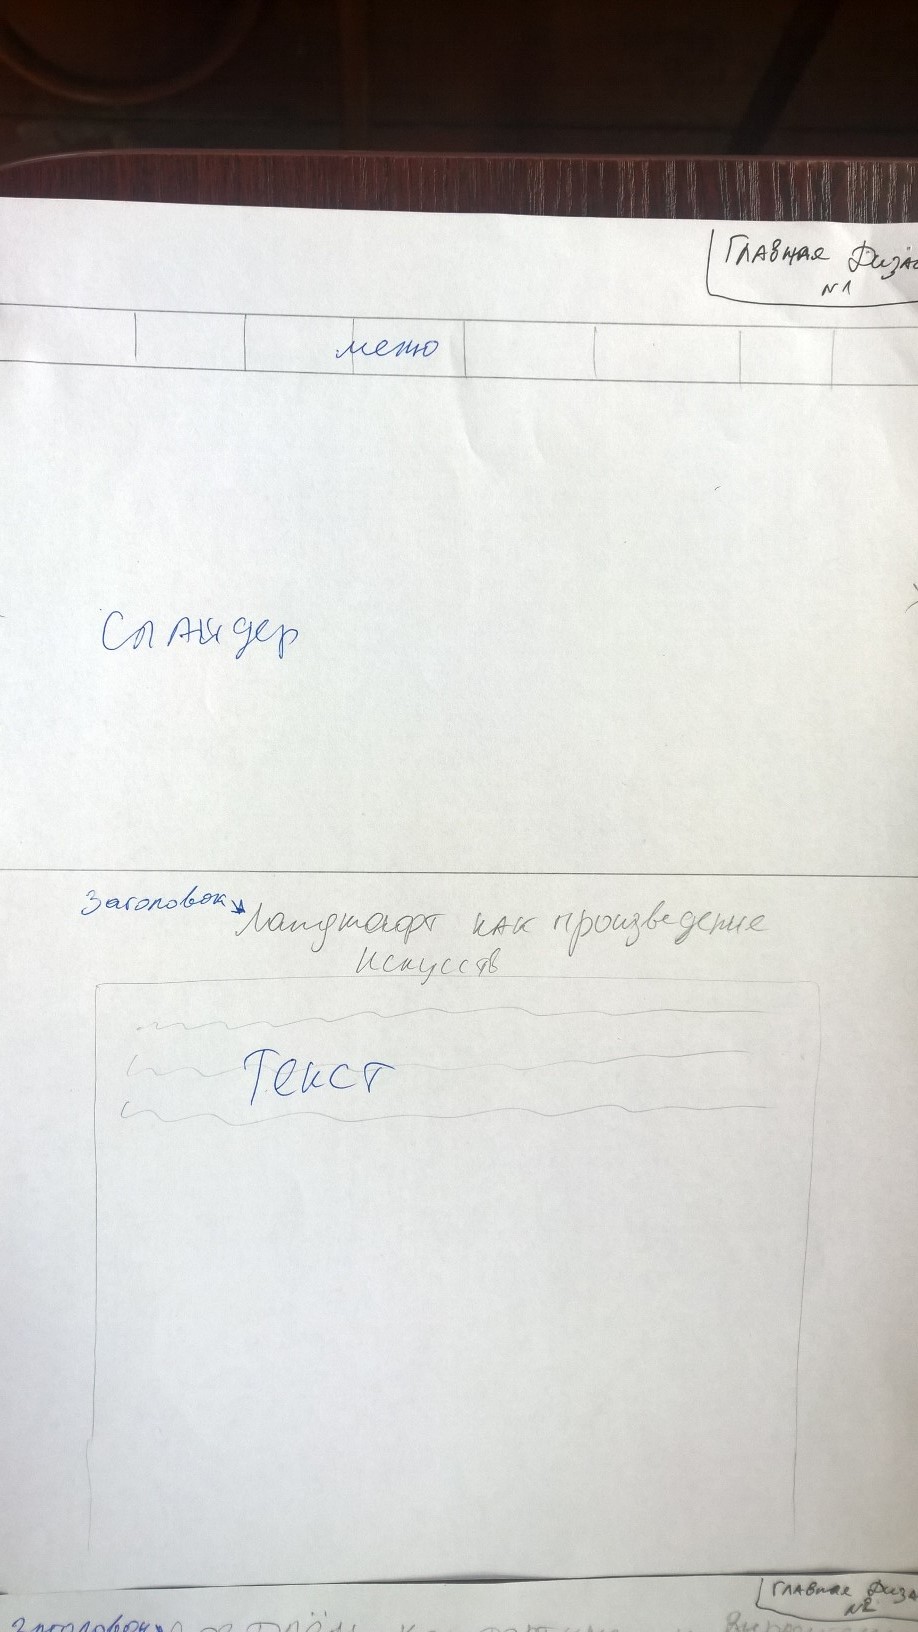 Главная Диза
N1
меню
Слайдер
Заголовок
Ландшафт как произведение
Искусств
Текст
Главная Диза
N2
Заголовок